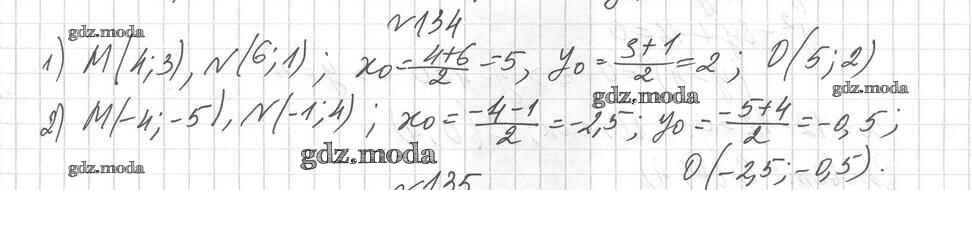 №134
gdz.moda
1) M(4;3), N(6;1); x₀=(4+6)/2=5, y₀=(3+1)/2=2; O(5;2)
gdz.moda gdz.moda
2) M(-4;-5), N(-1;4); x₀=(-4-1)/2=-2,5; y₀=(-5+4)/2=-0,5;
gdz.moda gdz.moda
O(-2,5;-0,5).
№135